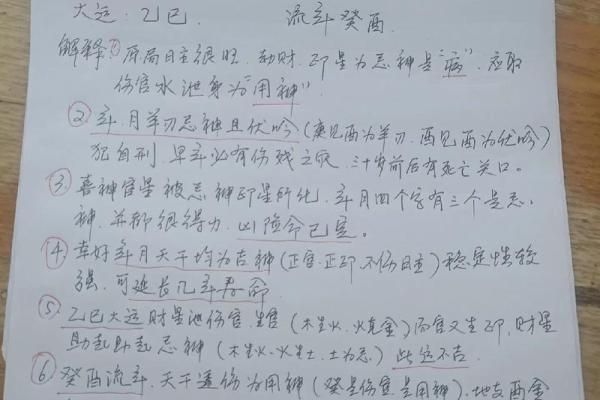 大运:乙巳. 流年癸酉.
解释:①原局日主很旺.劫财.印星为忌神是"病".应取
伤官水泄身为"用神".
②年.月羊刃忌神且伏吟(庚见酉为羊刃.酉见酉为伏吟)
犯自刑.早年必有伤残之灾.三十岁前后有死亡关口.
③喜神官星被忌神印星所化.年月四个字有三个是忌
神.并都很得力.凶险命已定。
④幸好年月天干均为吉神(正官.正印.不伤日主)稳定性较
强.可延长几年寿命
⑤乙巳大运财星泄伤官.生官(木生火.火克金)而官又生印.财星
助起忌神(木生火.火生土.土为忌)此运不吉.
⑥癸酉流年.天干透伤为用神(癸是伤官.是用神).地支酉金